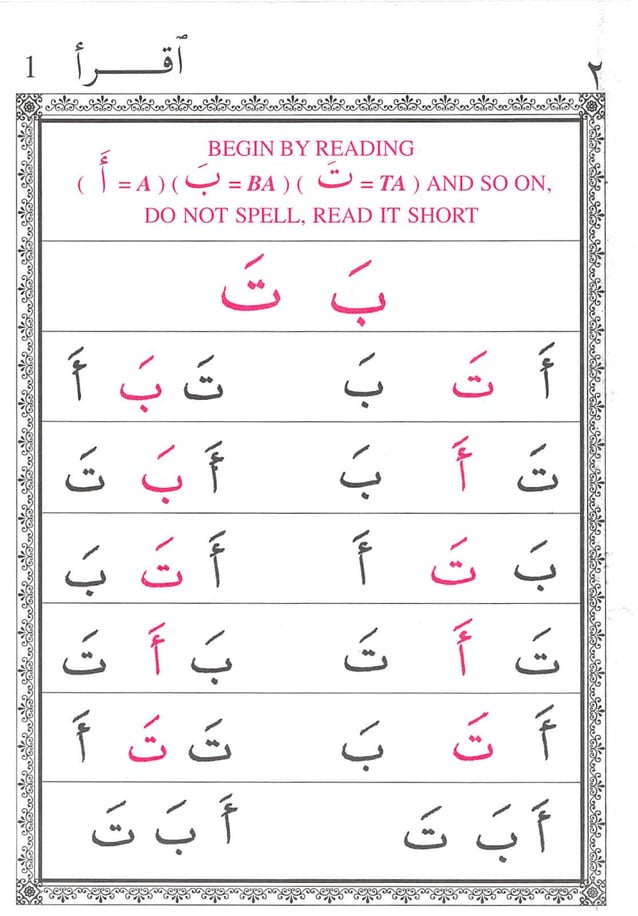 ٢ ٱقـــرأ 1
BEGIN BY READING
( أَ = A ) ( بَ = BA ) ( تَ = TA ) AND SO ON,
DO NOT SPELL, READ IT SHORT
بَ تَ
أَ تَ بَ تَ بَ أَ
تَ أَ بَ أَ بَ تَ
بَ تَ أَ أَ تَ بَ
تَ أَ تَ بَ أَ تَ
أَ تَ بَ تَ تَ أَ
أَ بَ تَ أَ بَ تَ